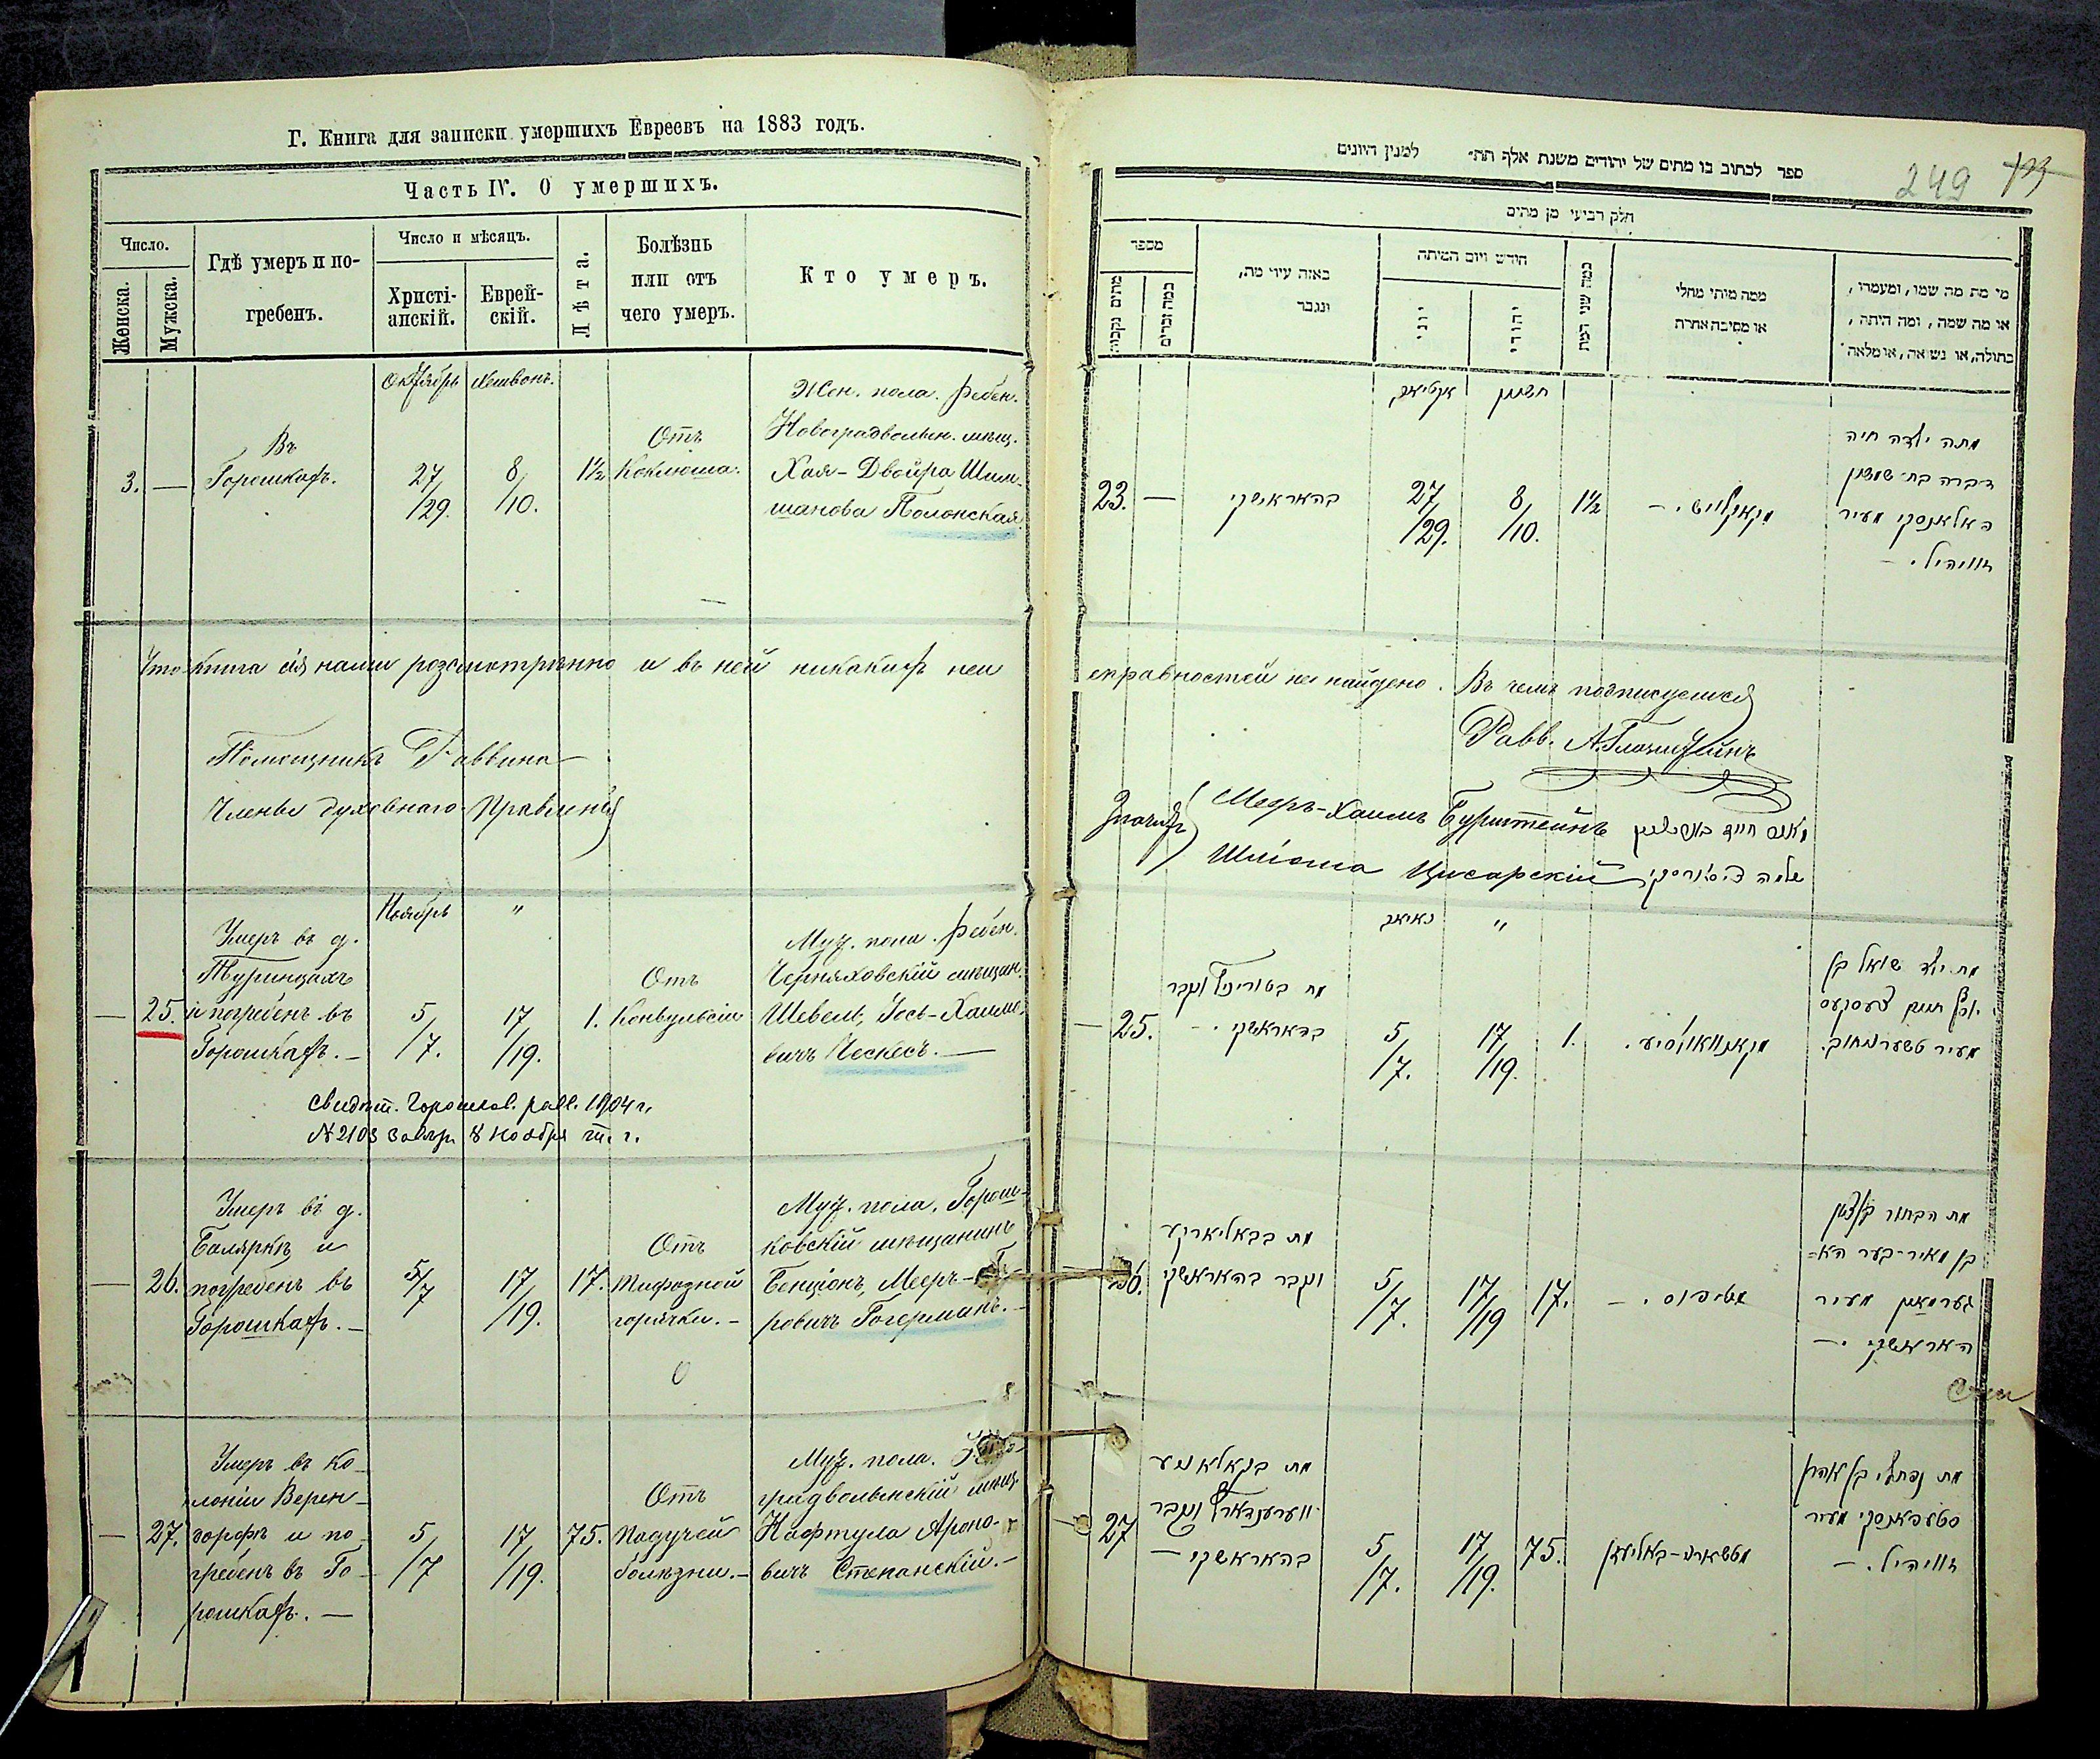 Г. Книга для записки умершихъ Евреевъ на 1883 годъ.
Часть IV. О умершихъ.
Число.
Женска.
Мужска.
Гдѣ умеръ и по-
гребенъ.
Число и мѣсяцъ.
Христі-
анскій.
Еврей-
скій.
Лѣта.
Болѣзнь
или отъ
чего умеръ.
Кто умеръ.
Октябрь
Хешвонъ.
3. —
Въ
Горошкахъ.
27/29.
8/10.
1½
Отъ
Коклюша.
Жен. пола. ребен.
Новоградволын. мѣщ.
Хая-Двойра Шим-
шанова Полонская
Что книга сія нами розсмотрѣнно и въ ней никакихъ неи
Помощникъ Раввина
Члены духовнаго Правленія
Ноябрь
"
— 25.
Умеръ въ д.
Туринцахъ
и погребенъ въ
Горошкахъ. —
5/7.
17/19.
1.
Отъ
Конвульсіи
Муж. пола. ребен.
Черняховскій мѣщан.
Шевель, Іось-Хаимо-
вичъ Ческесъ. —
Свидѣт. Горошков. равв. 1904 г.
№ 2103 8 ноября т. г.
— 26.
Умеръ въ д.
Баляркѣ и
погребенъ въ
Горошкахъ. —
5/7
17/19.
17.
Отъ
тифозной
горячки. —
Муж. пола. Горош-
ковскій мѣщанинъ
Бенціонъ, Мееръ-
ровичъ Гогерманъ. —
— 27.
Умеръ въ ко-
лоніи Верен-
дорфъ и по-
гребенъ въ Го-
рошкахъ. —
5/7
17/19.
75.
Отъ
падучей
болѣзни. —
Муж. пола.
градволынскій мѣщ.
Нафтула Ароно-
вичъ Степанскій. —
ספר לכתוב בו מתים של יהודים משנת אלף תת״ למנין היונים
249
חלק רביעי מן מתים
מספר
מתים נקבות
כמה זכרים
באזה עיר מת,
ונגבר
חודש ויום המיתה
יוני
יהודי
כמה שני המת
ממה מיתי מחלי
או מסיבה אחרת
מי מת מה שמו, ומעמדו,
או מה שמה, ומה היתה,
בתולה, או נשואה, או מלאה
אקטיאב
חשון
23. —
בהאראשקי
27/29.
8/10.
1½
מקאקלייש. —
מתה ילדה חיה
דברה בת שמשון
פאלאנסקי מעיר
זוויהיל. —
справностей не найдено. Въ чемъ подписуемся
Равв. А. Глозштейнъ
Значитъ
Мееръ-Хаимъ Бурштейнъ
Шліома Цисарскій
נאיאב
"
— 25.
מת בטורינץ ונקבר
בהאראשקי. —
5/7.
17/19.
1.
מקאנוואולסיע.
מת ילד שואל בן
יוסף חיים צעסקעס
מעיר טשערניחוב.
26.
מת בבאליארקע
ונקבר בהאראשקי
5/7.
17/19
17.
מטיפוס. —
מת הבחור בן ציון
בן מאיר-בער הא=
גערמאן מעיר
האראשקי. —
— 27
מת בקאלאניע
ווערענדארף ונקבר
בהאראשקי —
5/7.
17/19.
75.
מת נפתלי בן אהרן
סטעפאנסקי מעיר
זוויהיל. —